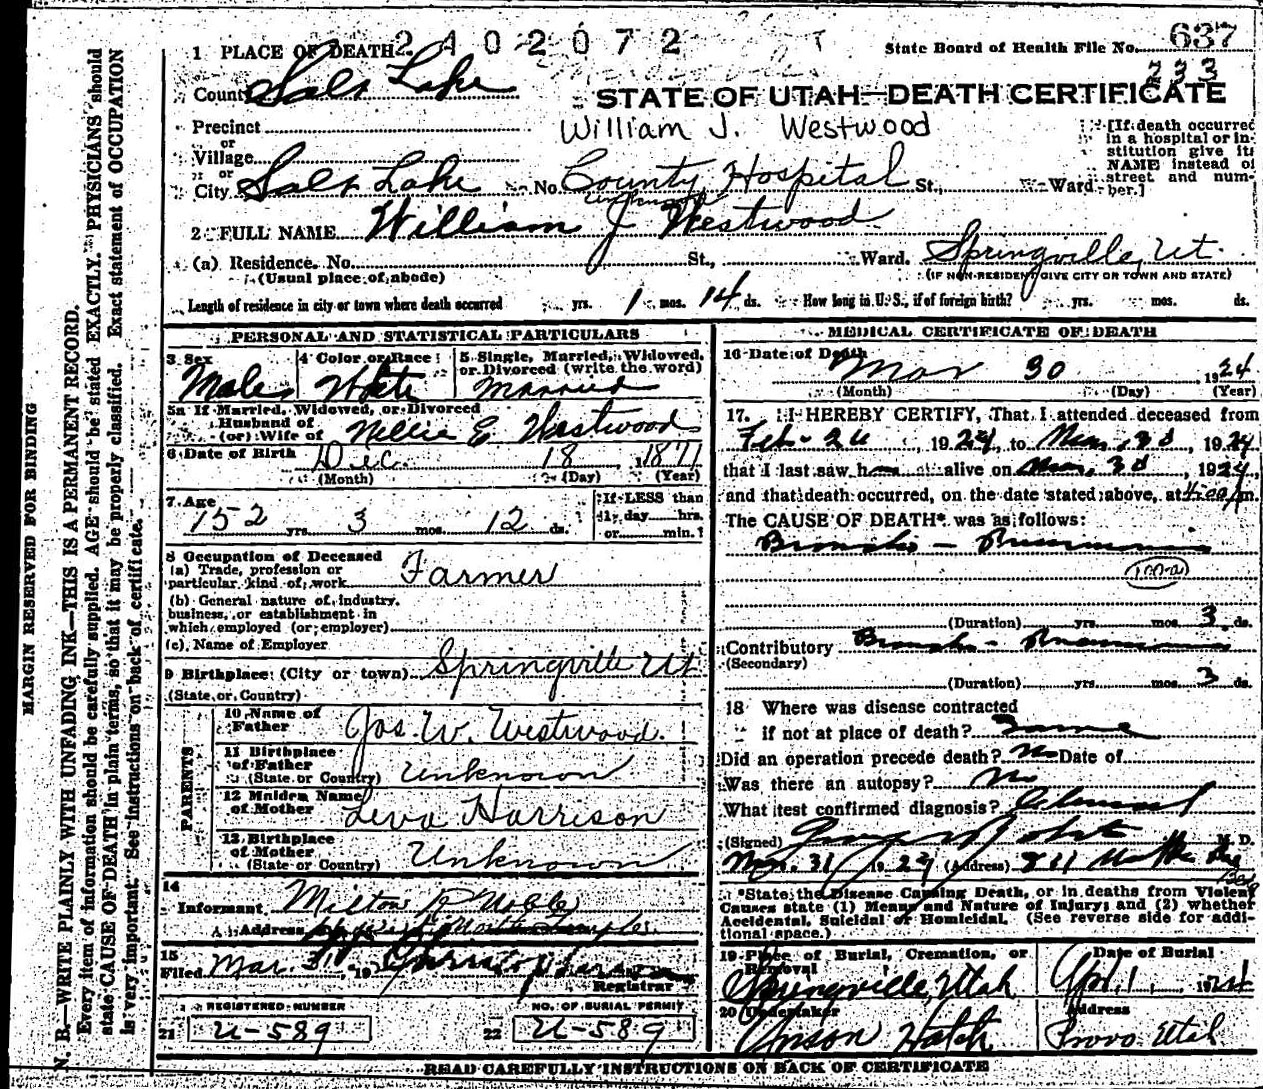 2402072
State Board of Health File No. 637
233
1 PLACE OF DEATH
County Salt Lake
STATE OF UTAH—DEATH CERTIFICATE
Precinct
William J. Westwood
or
Village
or
City Salt Lake No. County Hospital St., Ward
[If death occurred in a hospital or institution give its NAME instead of street and number.]
2 FULL NAME William J Westwood
(a) Residence. No. St., Ward. Springville, Ut.
(Usual place of abode) (IF NON-RESIDENT GIVE CITY OR TOWN AND STATE)
Length of residence in city or town where death occurred yrs. 1 mos. 14 ds. How long in U. S., if of foreign birth? yrs. mos. ds.
PERSONAL AND STATISTICAL PARTICULARS
3 Sex 4 Color or Race 5 Single, Married, Widowed, or Divorced (write the word)
Male White Married
5a If Married, Widowed, or Divorced
Husband of
(or) Wife of Nellie E Westwood
6 Date of Birth Dec. 18 1871
(Month) (Day) (Year)
7 Age
52 yrs. 3 mos. 12 ds.
If LESS than
1 day hrs.
or min.
8 Occupation of Deceased
(a) Trade, profession or
particular kind of work Farmer
(b) General nature of industry,
business, or establishment in
which employed (or employer)
(c) Name of Employer
9 Birthplace (City or town) Springville Ut
(State or Country)
PARENTS
10 Name of
Father Jos. W. Westwood.
11 Birthplace
of Father
(State or Country) Unknown
12 Maiden Name
of Mother Leva Harrison
13 Birthplace
of Mother
(State or Country) Unknown
14
Informant Milton R Noble
Address
15
Filed Mar. 31, 19
Registrar
REGISTERED NUMBER NO. OF BURIAL PERMIT
21 U-589 22 U-589
MEDICAL CERTIFICATE OF DEATH
16 Date of Death
Mar 30 1924
(Month) (Day) (Year)
17. I HEREBY CERTIFY, That I attended deceased from
Feb. 26, 1924, to Mar. 30 1924
that I last saw him alive on Mar. 30, 1924,
and that death occurred, on the date stated above, at m.
The CAUSE OF DEATH* was as follows:
Broncho - Pneumonia
(100a)
(Duration) yrs. mos. 3 ds.
Contributory Broncho - Pneumonia
(Secondary)
(Duration) yrs. mos. 3 ds.
18 Where was disease contracted
if not at place of death? Same
Did an operation precede death? No Date of
Was there an autopsy? No
What test confirmed diagnosis? Clinical
(Signed) M. D.
Mar. 31, 1924 (Address)
*State the Disease Causing Death, or in deaths from Violent
Causes state (1) Means and Nature of Injury; and (2) whether
Accidental, Suicidal or Homicidal. (See reverse side for addi-
tional space.)
19 Place of Burial, Cremation, or Removal Date of Burial
Springville, Utah Apr. 1, 1924
20 Undertaker Address
Anson Hatch Provo Utah
READ CAREFULLY INSTRUCTIONS ON BACK OF CERTIFICATE
MARGIN RESERVED FOR BINDING
N. B.—WRITE PLAINLY WITH UNFADING INK—THIS IS A PERMANENT RECORD.
Every item of information should be carefully supplied. AGE should be stated EXACTLY. PHYSICIANS should
state CAUSE OF DEATH in plain terms, so that it may be properly classified. Exact statement of OCCUPATION
is very important. See instructions on back of certificate.